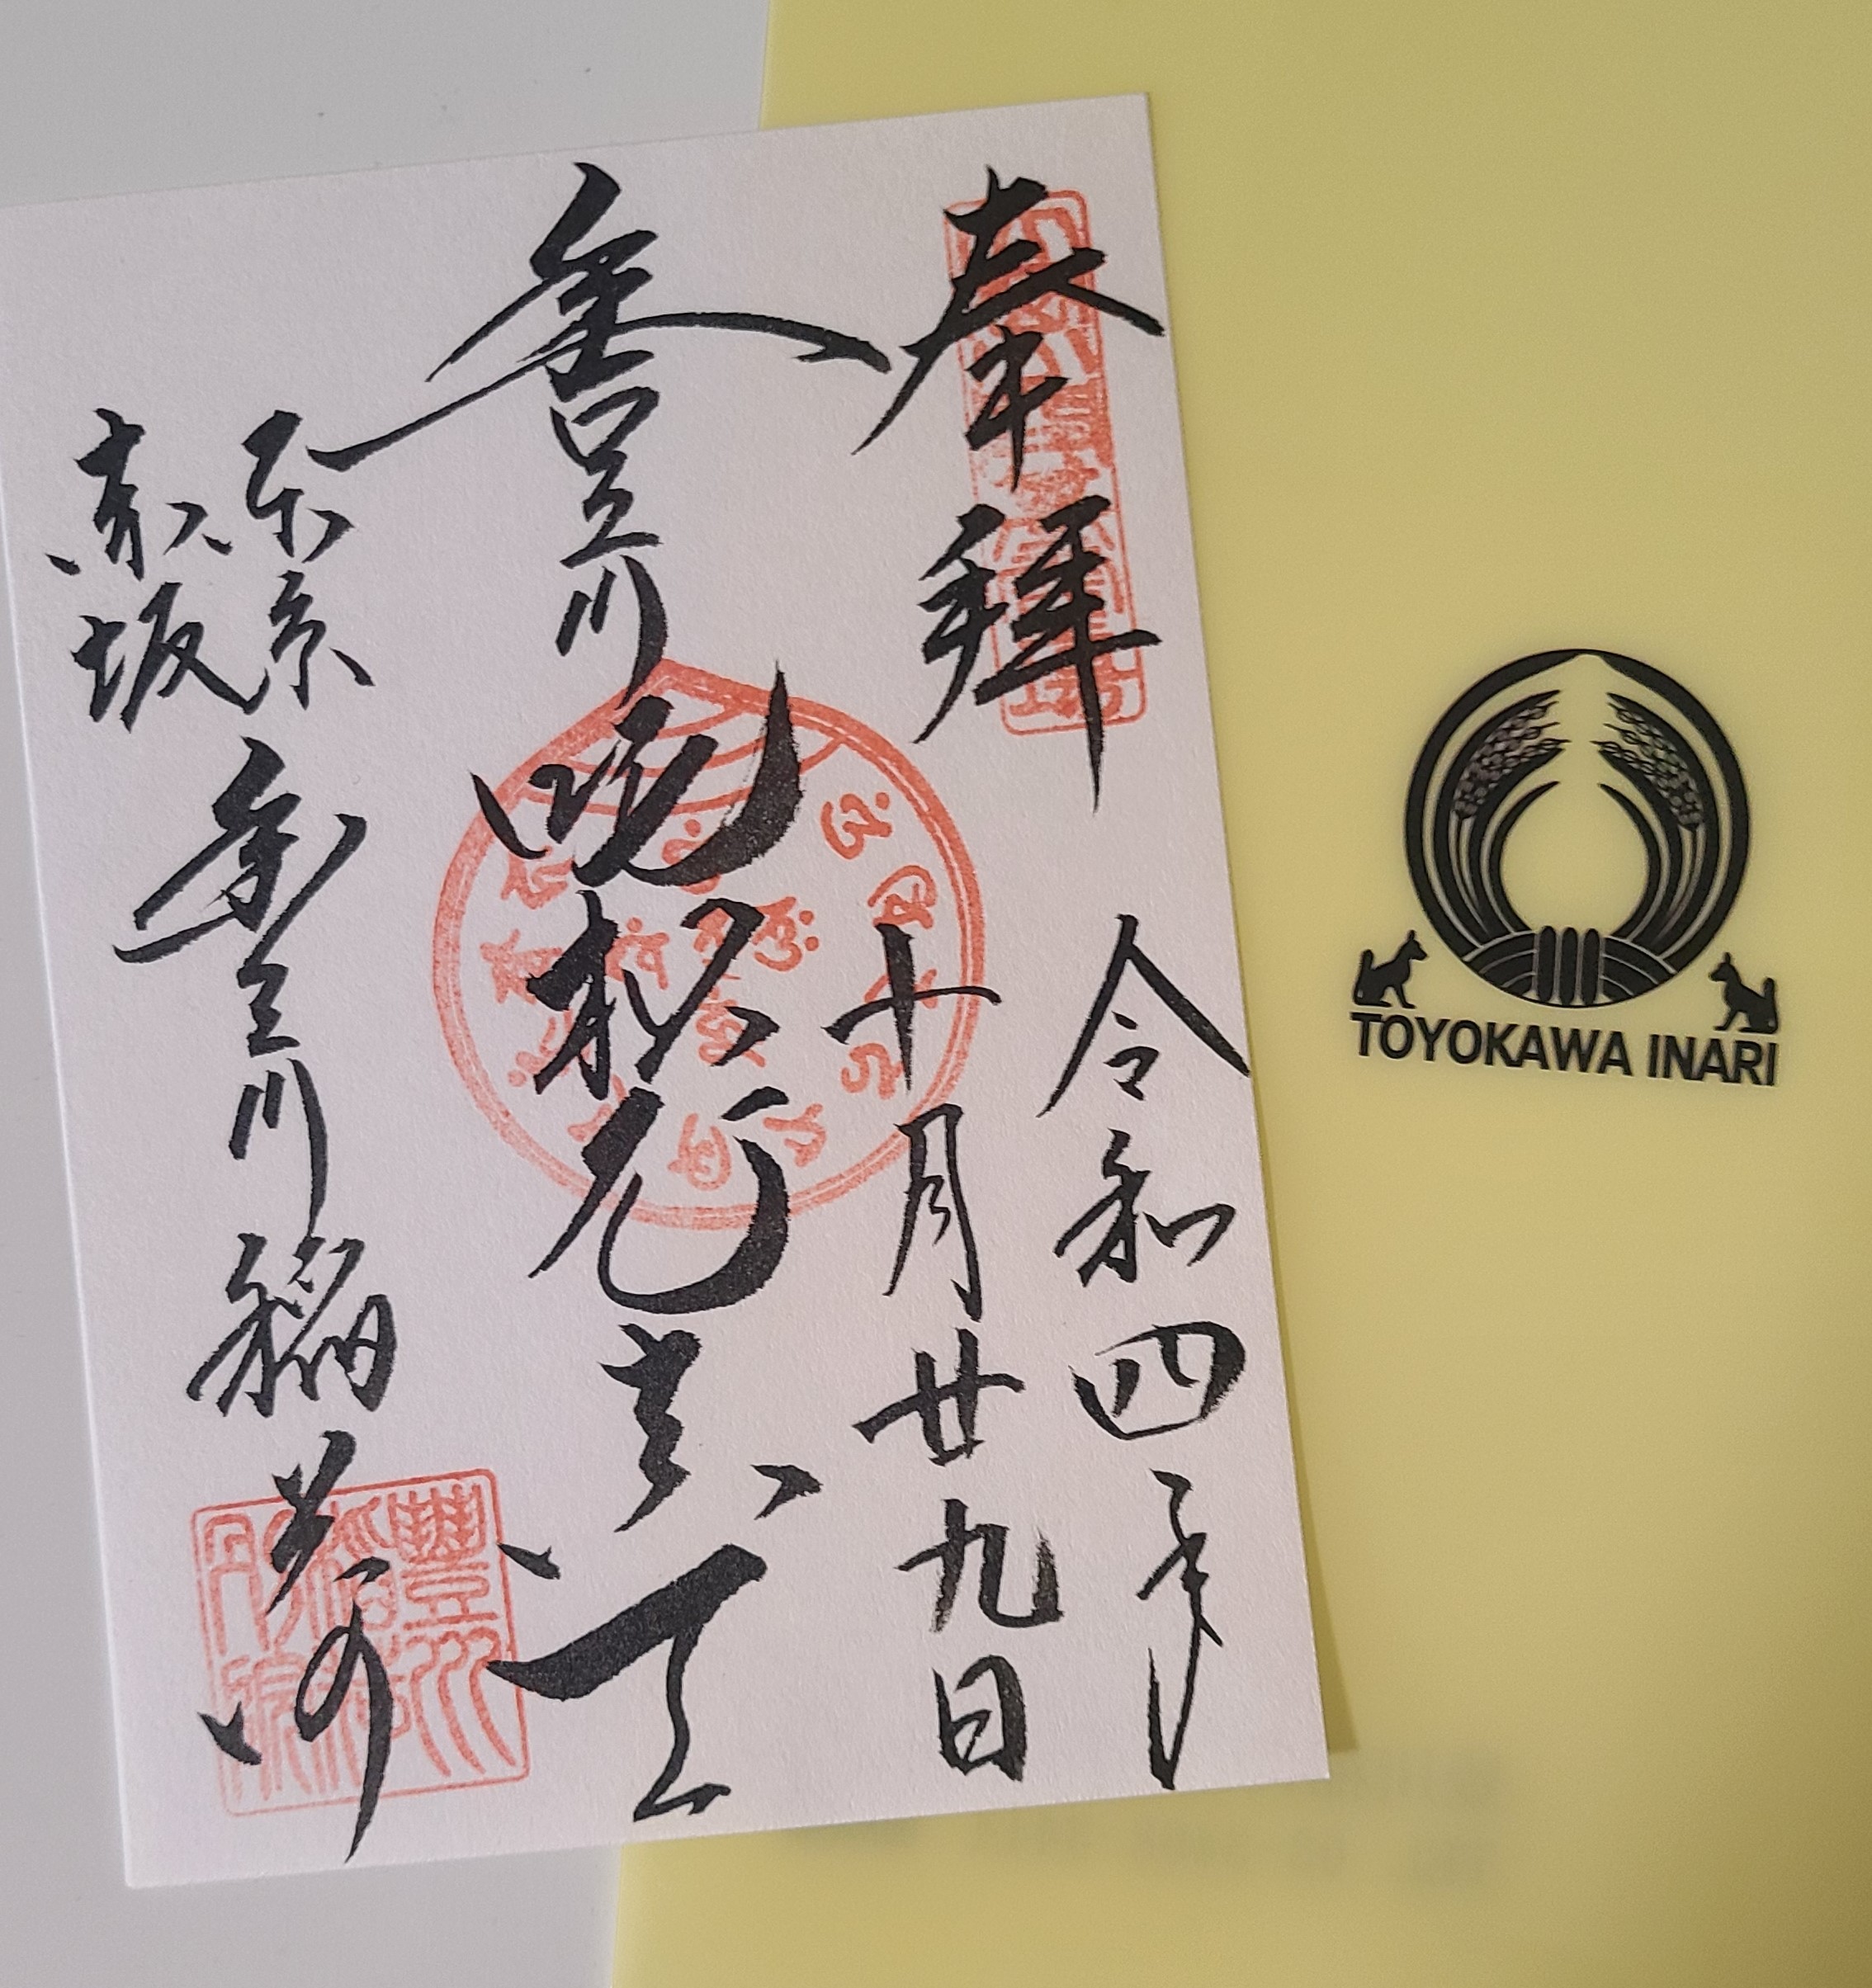 奉拝
令和四年
十月廿九日
豊川吒枳尼真天
東京
赤坂
豊川稲荷
豐川
稲荷
別院
TOYOKAWA INARI